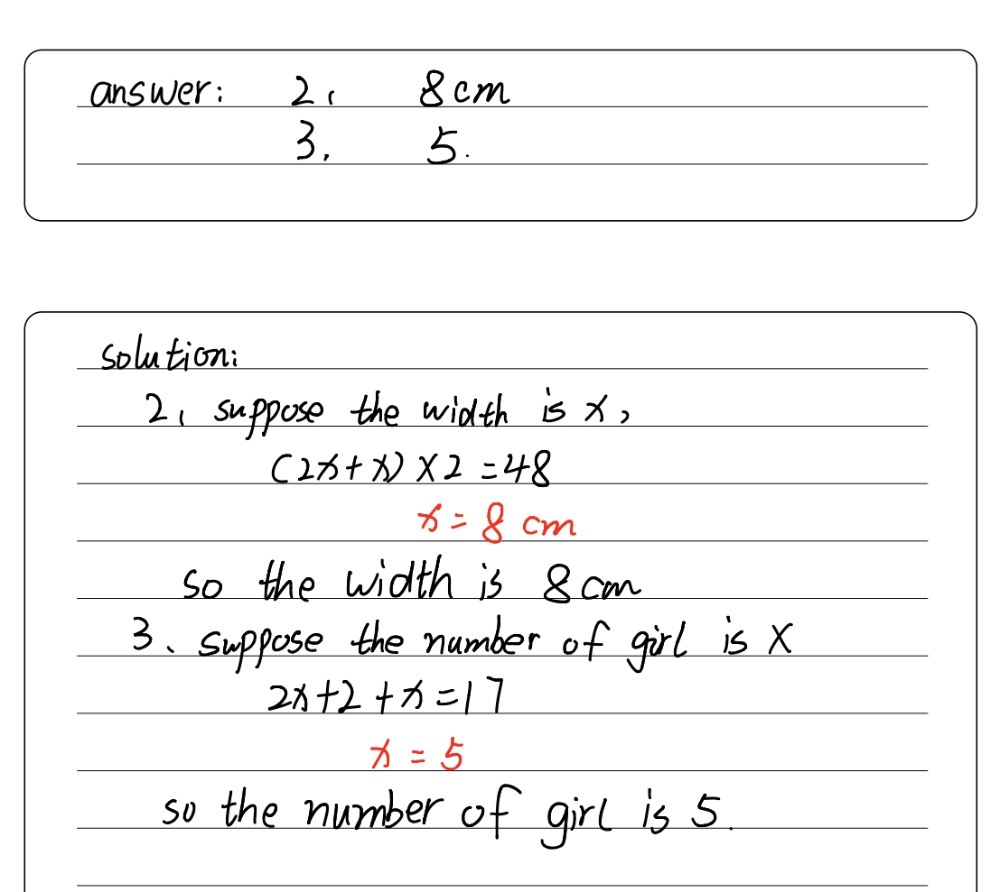 answer: 2、 8cm
3、 5.
solution:
2、suppose the width is x,
(2x+x)×2=48
x=8 cm
so the width is 8cm
3、suppose the number of girl is X
2x+2+x=17
x=5
so the number of girl is 5.